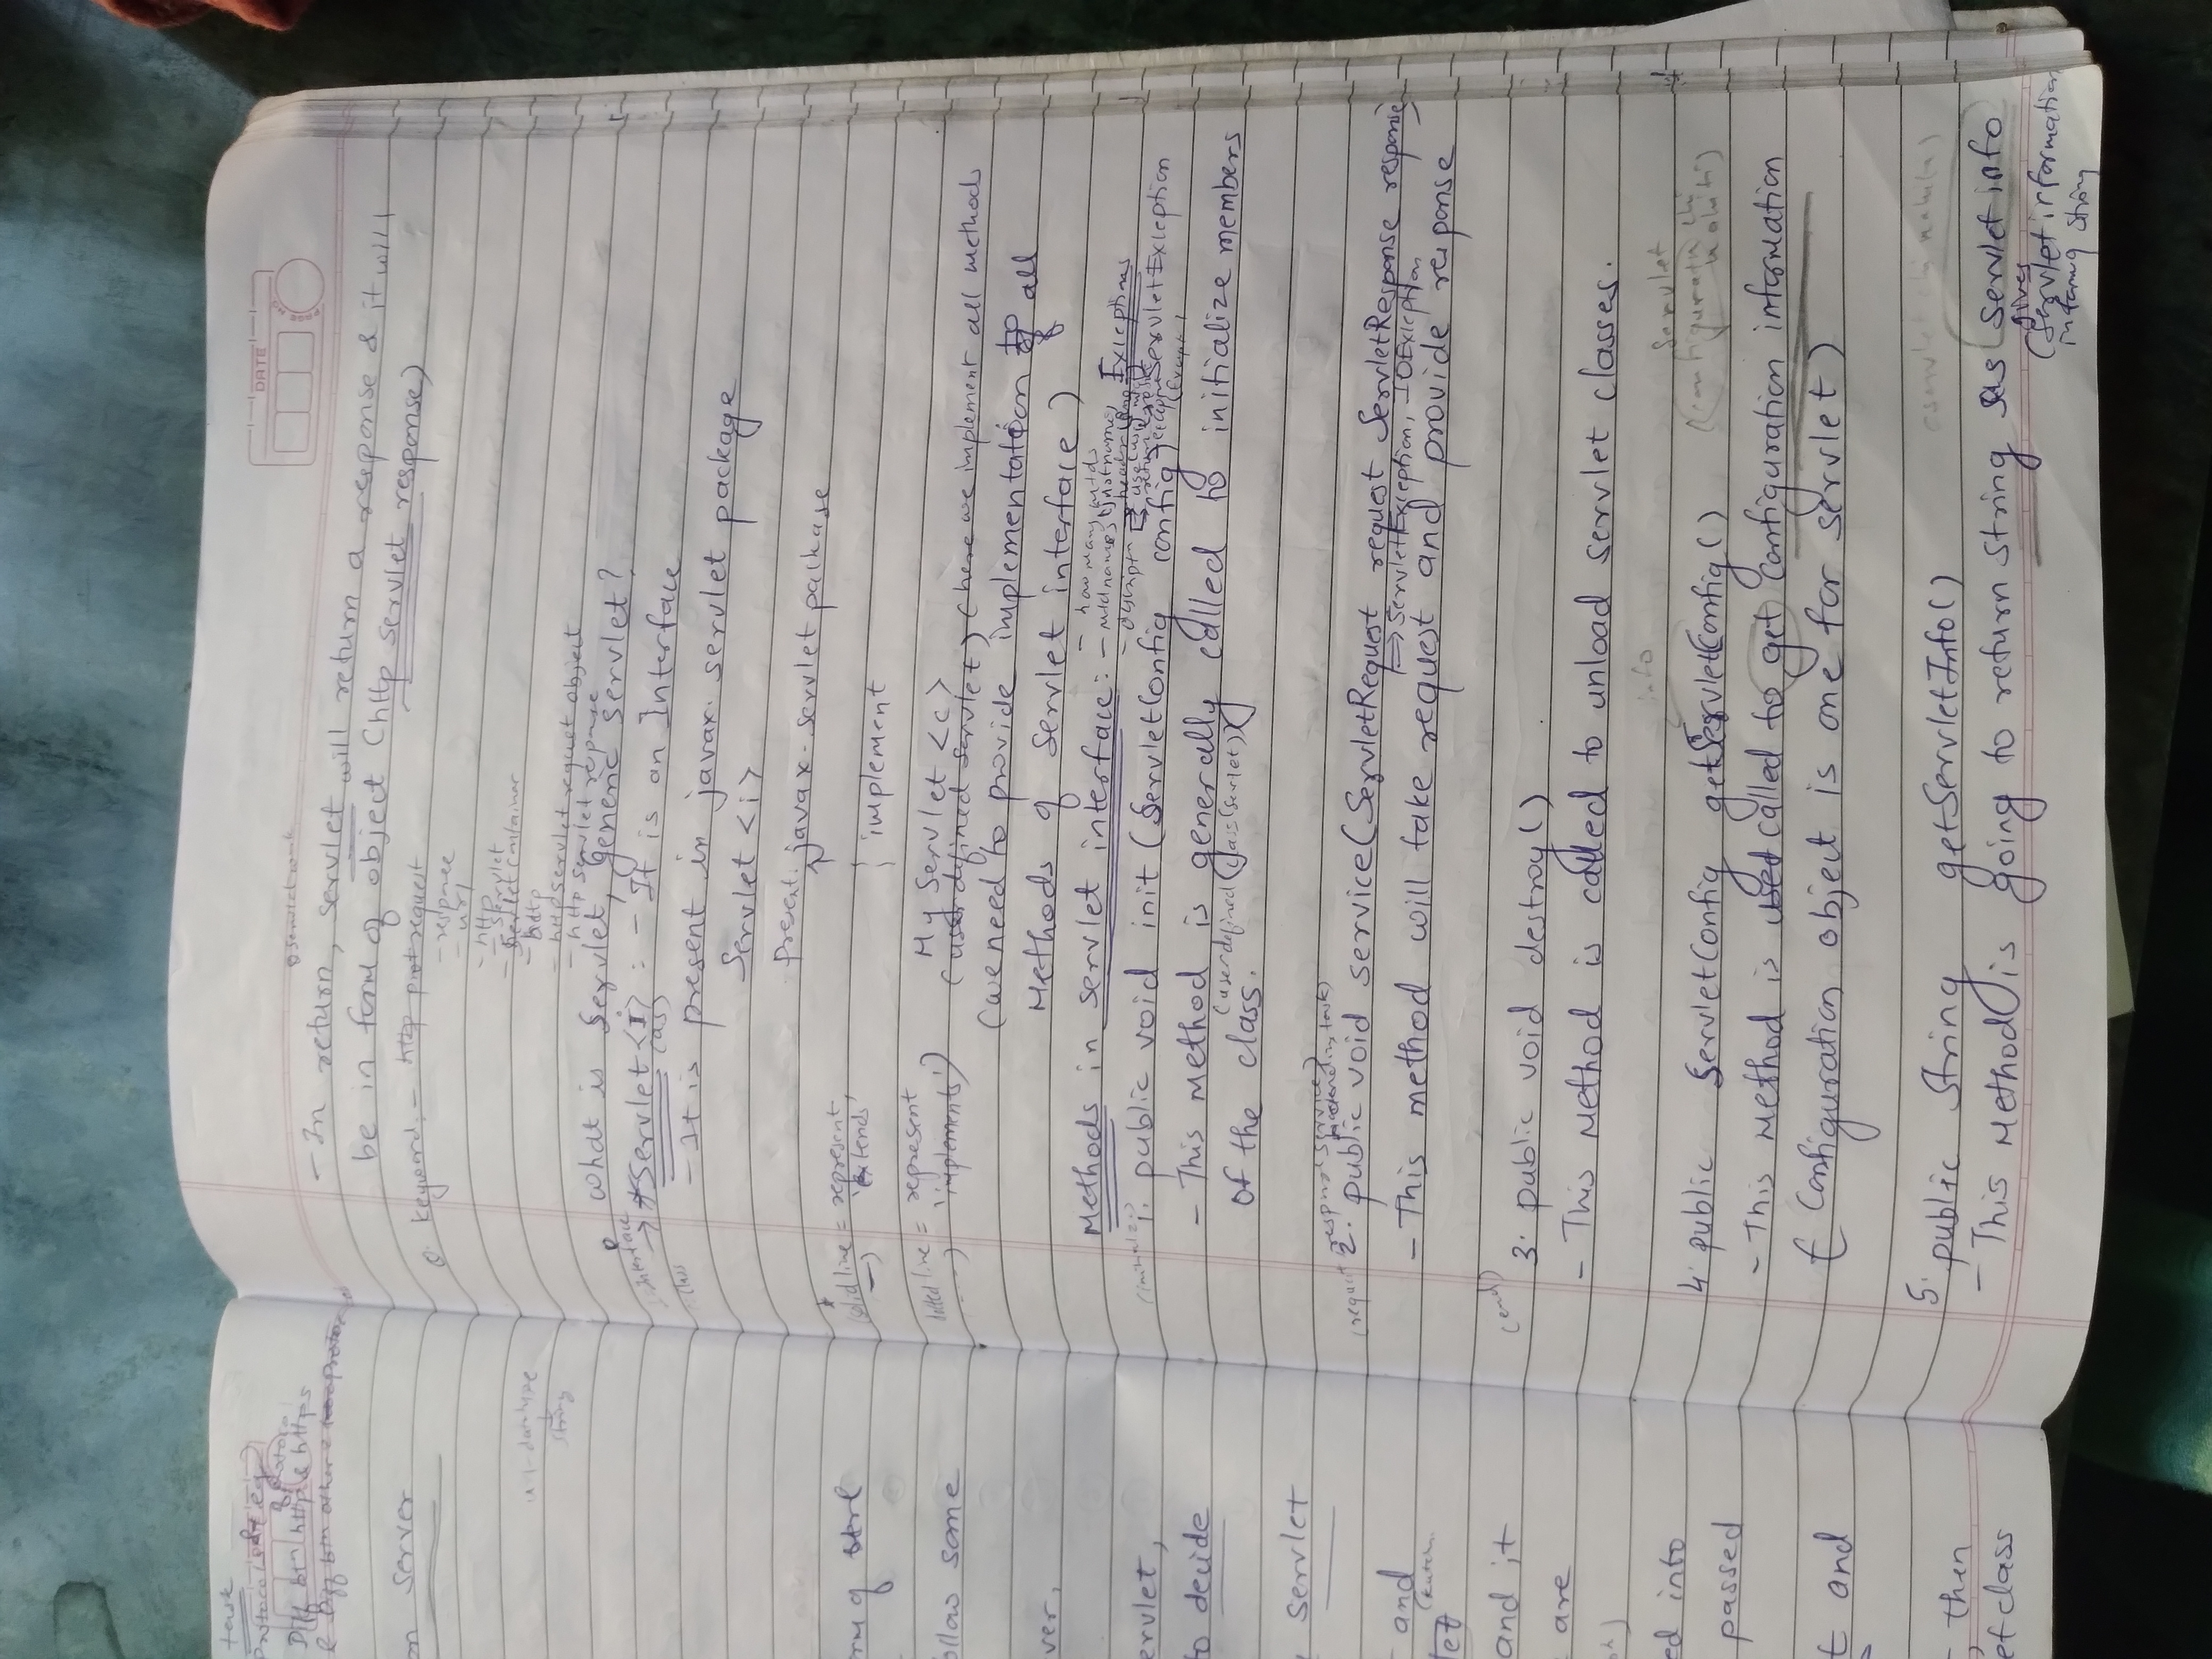 task
Diff btn http & https
on server
url - datatype
string
rm of
ollow some
ver,
ervlet,
to decide
servlet
and
let
and it
are
ed into
passed
t and
, then
et class
DATE
servlet work
- In return, servlet will return a response & it will
be in form of object (http servlet response)
Keyword: - http prot request
- response
- url
- http
- servlet
- servlet container
- http
- http servlet request object
- http servlet reponse
what is servlet, generic servlet?
Interface
class
→ * Servlet <I> : - It is an Interface
(as)
- It is present in javax. servlet package
Servlet <i>
present. javax. servlet package
solid line = represent
'extends'
implement
dotted line = represent
'implements')
My Servlet <c>
(user defined servlet) (here we implement all methods
(we need to provide implementation to all
Methods of Servlet interface)
Methods in servlet interface: - how many mtds
Exceptions
1. public void init (ServletConfig config) ServletException
- This method is generally called to initialize members
(user defined class (servlet))
of the class.
2. public void service(ServletRequest request ServletResponse response)
⇒ ServletException, IOException
- This method will take request and provide response
(end)
3. public void destroy()
- This Method is called to unload servlet classes.
info
Servlet
4. public ServletConfig getServletConfig()
- This Method is used called to get configuration information
( Configuration object is one for servlet)
5. public String getServletInfo()
- This Method is going to return string as servlet info
gives
(servlet information
in form of string